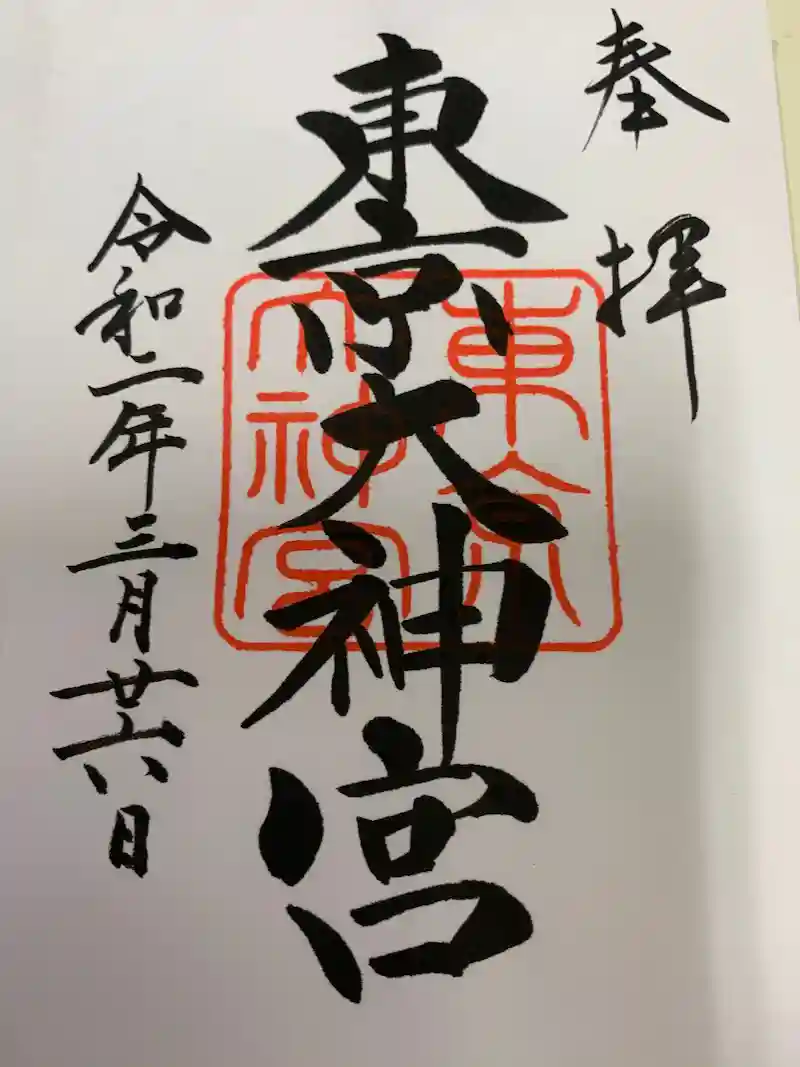 奉拝
東京大神宮
東京
大神宮
令和二年三月廿六日